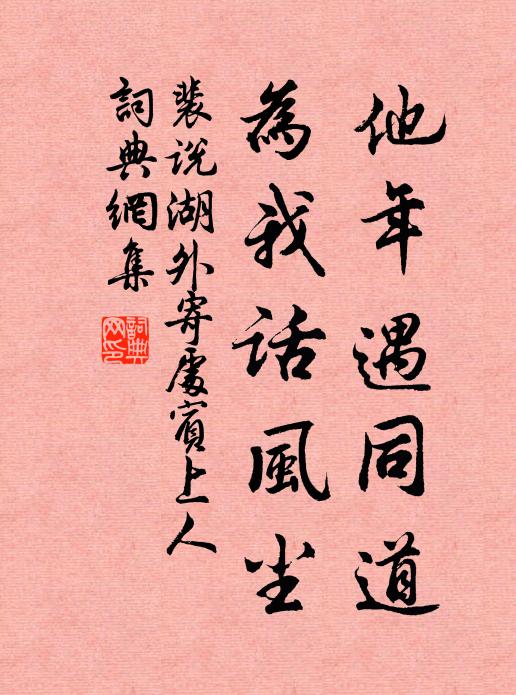 他年遇同道
為我話風尘
裴説湖外寄處賓上人
詞典網集
詞典网印